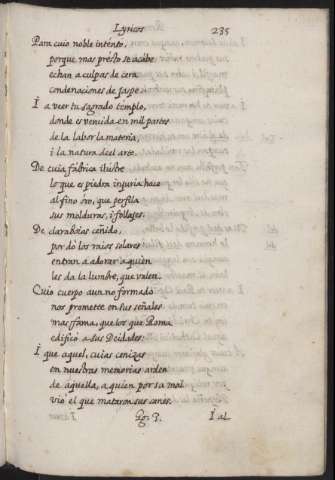 Lyricos 235
Para cuio noble intento,
porque mas présto se acabe
echan a culpas de cera
condenaciones de jaspe.
Í a veer tu sagrado templo,
donde es vencida en mil partes
de la labor la materia,
i la natura del arte.
De cuia fábrica ilustre
lo que es piedra injuria hace
al fino oro, que perfila
sus molduras, i follages.
De claraboias ceñido,
por dó los raios solares
entran a adorar a quien
les da la lumbre, que valen.
Cuio cuerpo aun no formado
nos promette en sus señales
mas fama, que los que Roma
edificó a sus Deidades.
Í que aquel, cuias cenizas
en nuestras memorias arden
de aquella, a quien por su mal
vió el que mataron sus canes.
Gg. 3. Í al